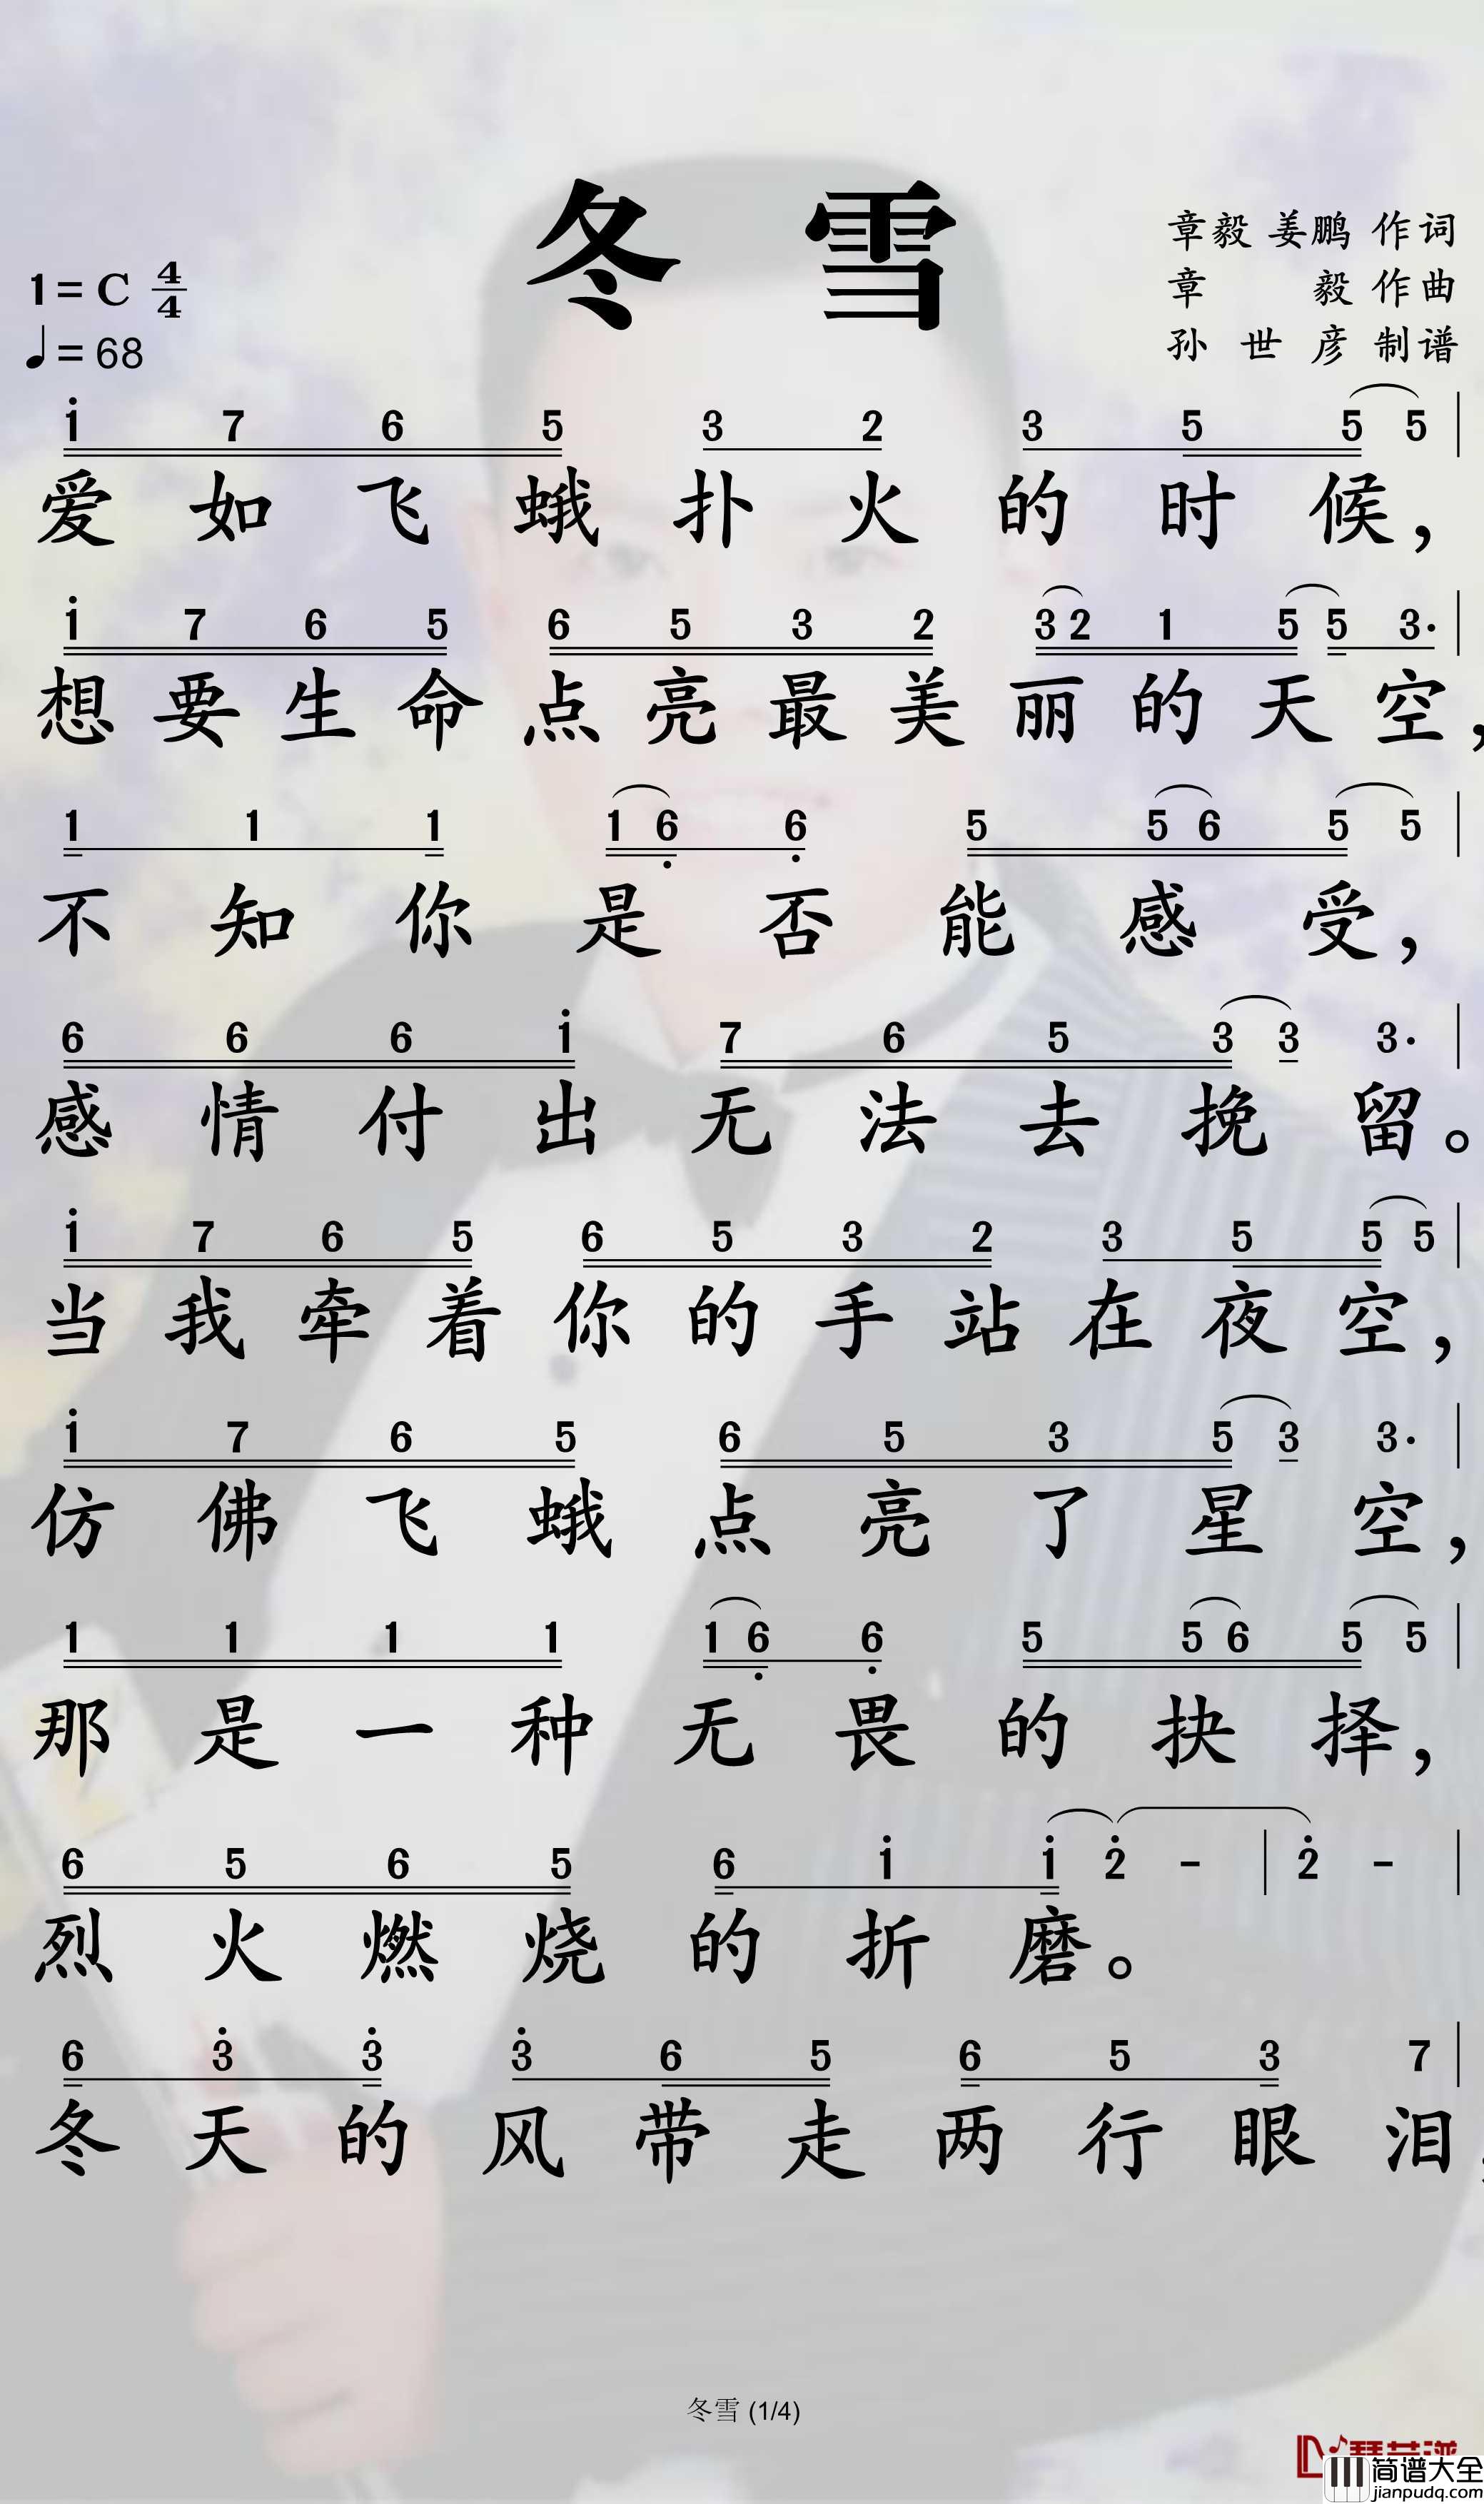 冬 雪
章毅 姜鹏 作词
章 毅 作曲
孙 世 彦 制谱
1=C 4/4
♩=68
i 7 6 5 3 2 3 5 5 5 |
爱 如 飞 蛾 扑 火 的 时 候，
i 7 6 5 6 5 3 2 3 2 1 5 5 3· |
想 要 生 命 点 亮 最 美 丽 的 天 空，
1 1 1 1 6̣ 6̣ 5 5 6 5 5 |
不 知 你 是 否 能 感 受，
6 6 6 i 7 6 5 3 3 3· |
感 情 付 出 无 法 去 挽 留。
i 7 6 5 6 5 3 2 3 5 5 5 |
当 我 牵 着 你 的 手 站 在 夜 空，
i 7 6 5 6 5 3 5 3 3· |
仿 佛 飞 蛾 点 亮 了 星 空，
1 1 1 1 1 6̣ 6̣ 5 5 6 5 5 |
那 是 一 种 无 畏 的 抉 择，
6 5 6 5 6 i i 2̇ - | 2̇ - |
烈 火 燃 烧 的 折 磨。
6 3̇ 3̇ 3̇ 6 5 6 5 3 7 |
冬 天 的 风 带 走 两 行 眼 泪
冬雪 (1/4)
简谱大全
jianpudq.com